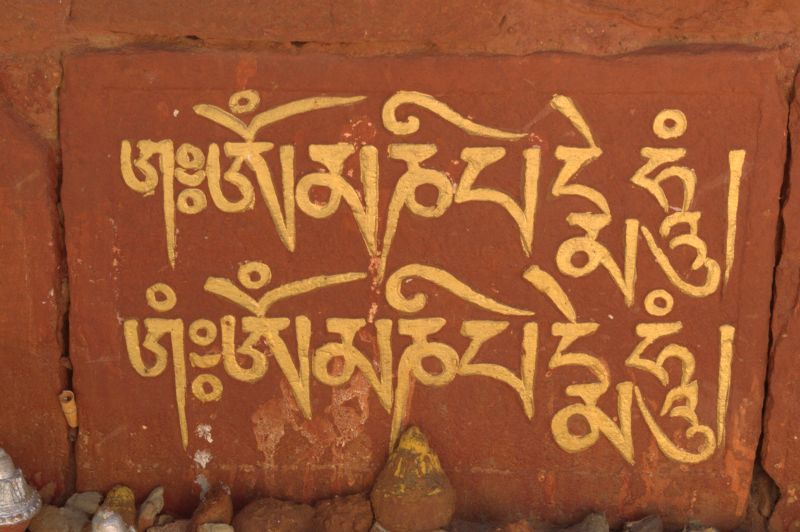 ༁༔ཨོཾམཎིཔདྨེཧཱུཾ།
༁ཾ༔ཨོཾམཎིཔདྨེཧཱུཾ།